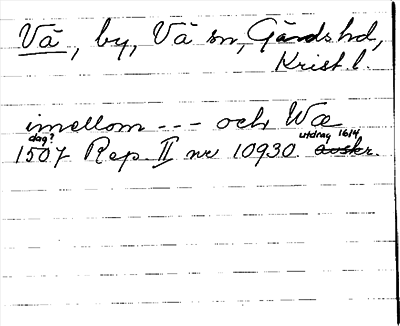 Vä, by, Vä sn, Gärds hd,
Krist. l.
imellom --- och Wæ
dag? utdrag 1614
1507 Rep. II nr 10930 avskr.